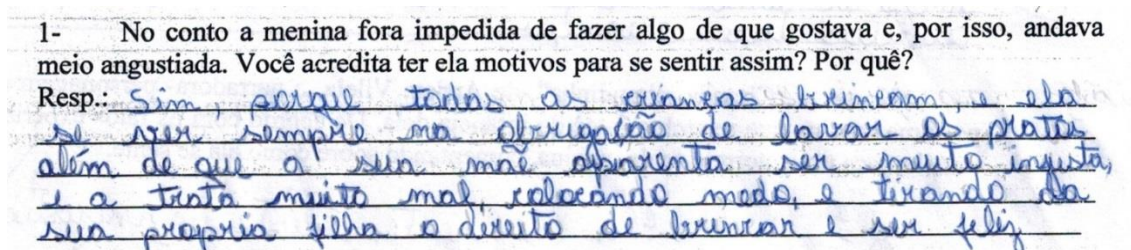 1- No conto a menina fora impedida de fazer algo de que gostava e, por isso, andava
meio angustiada. Você acredita ter ela motivos para se sentir assim? Por quê?
Resp.: Sim, porque todas as crianças brincam, e ela
se ver, sempre na obrigação de lavar os pratos
além de que a sua mãe aparenta ser muito injusta,
e a trata muito mal, colocando medo, e tirando da
sua propria filha o direito de brincar e ser feliz